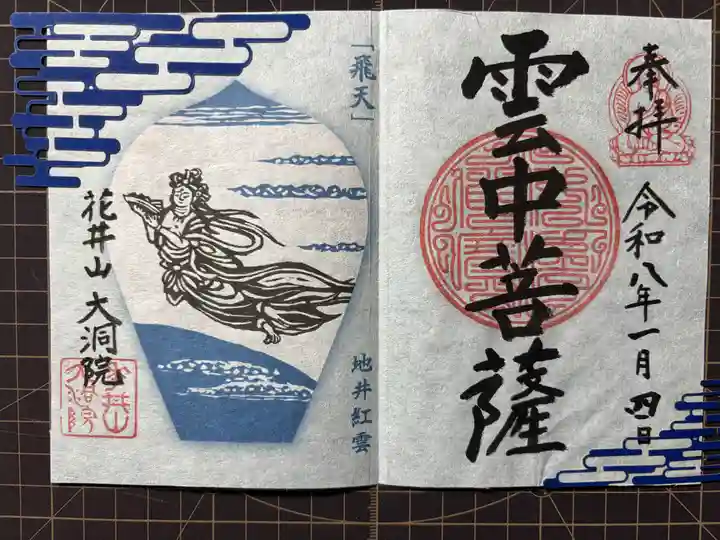 奉拝
令和八年一月四日
雲中菩薩
「飛天」
地井紅雲
花井山 大洞院